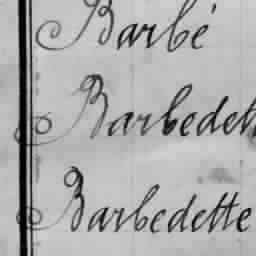 Barbé
Barbedett
Barbedette